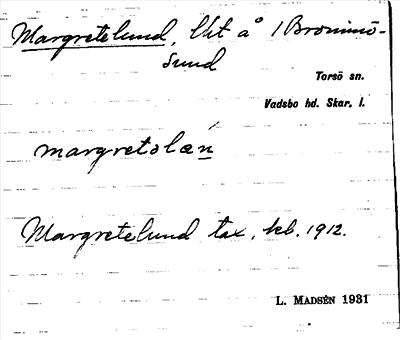 Margretelund, lht å /Brommö-
sund
Torsö sn.
Vadsbo hd. Skar. l.
margretslǽn
Margretelund tax, kb. 1912.
L. MADSÉN 1931